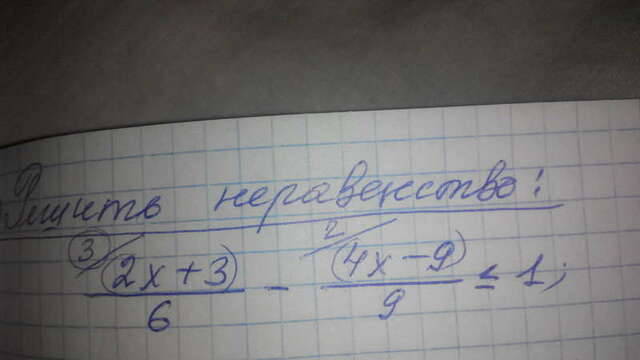 Решить неравенство:
3/(2x+3)/6 - 2/(4x-9)/9 ≤ 1;